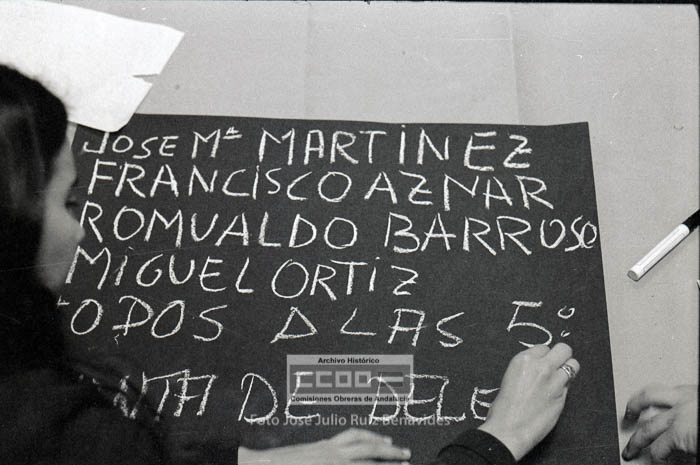 JOSE Mª MARTINEZ
FRANCISCO AZNAR
ROMUALDO BARROSO
MIGUEL ORTIZ
TODOS A LAS 5:
DE DELE
Archivo Histórico
CCOO
Comisiones Obreras de Andalucía
Foto José Julio Ruiz Benavides